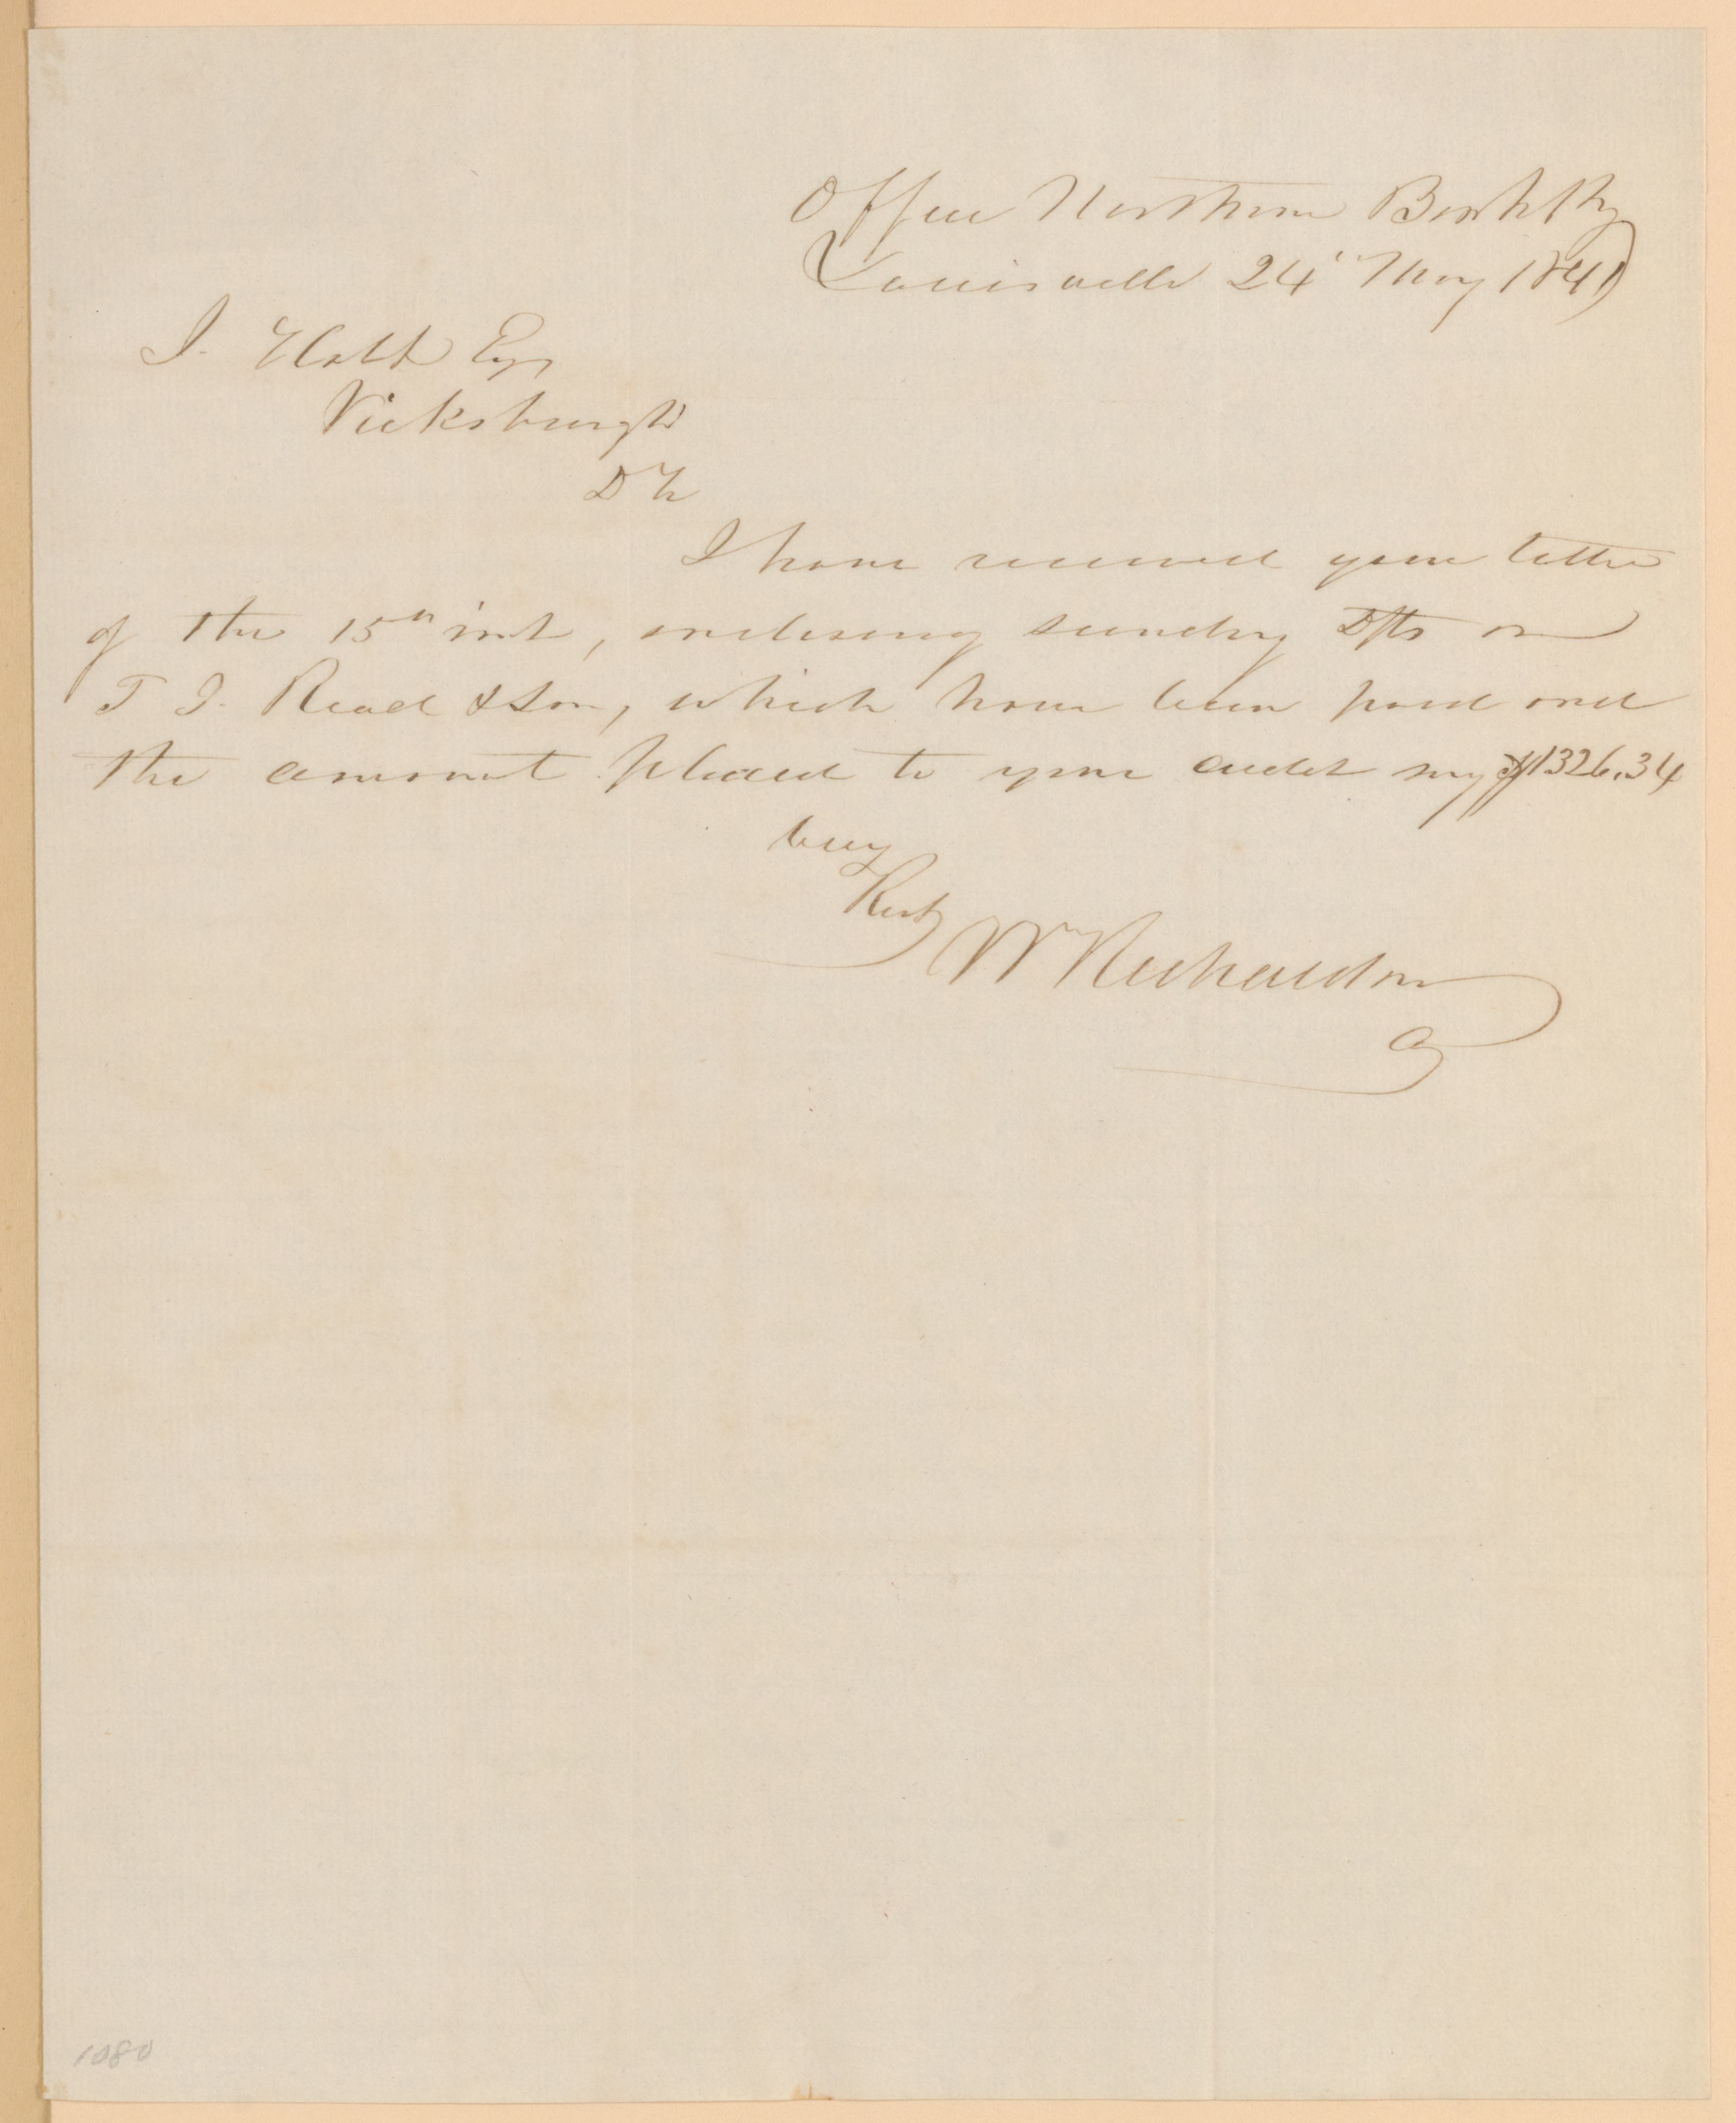 Office Northern Bank Ky
Louisville 24' May 1841
J. Holt Esq
Vicksburgh
D Sr
I have received your letter
of the 15th inst, enclosing sundry Dfts on
T J. Read & Son, which have been paid and
the amount placed to your credit say $1326.34
Very
Resp
Wm Richardson
1080